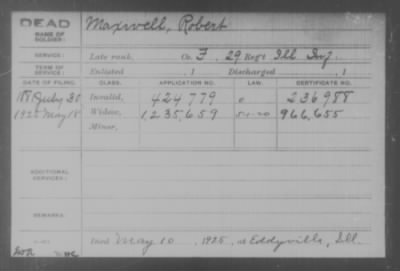 DEAD
NAME OF SOLDIER:
Maxwell, Robert
SERVICE:
Late rank, Co. F, 29 Reg't Ill Inf.
TERM OF SERVICE:
Enlisted , 1 Discharged , 1
DATE OF FILING. CLASS. APPLICATION NO. LAW. CERTIFICATE NO.
July 30 Invalid, 424779 236988
1925 May 18 Widow, 1,235,659 966,655
Minor,
ADDITIONAL SERVICES:
REMARKS:
Died May 10, 1925, at Eddyville, Ill.